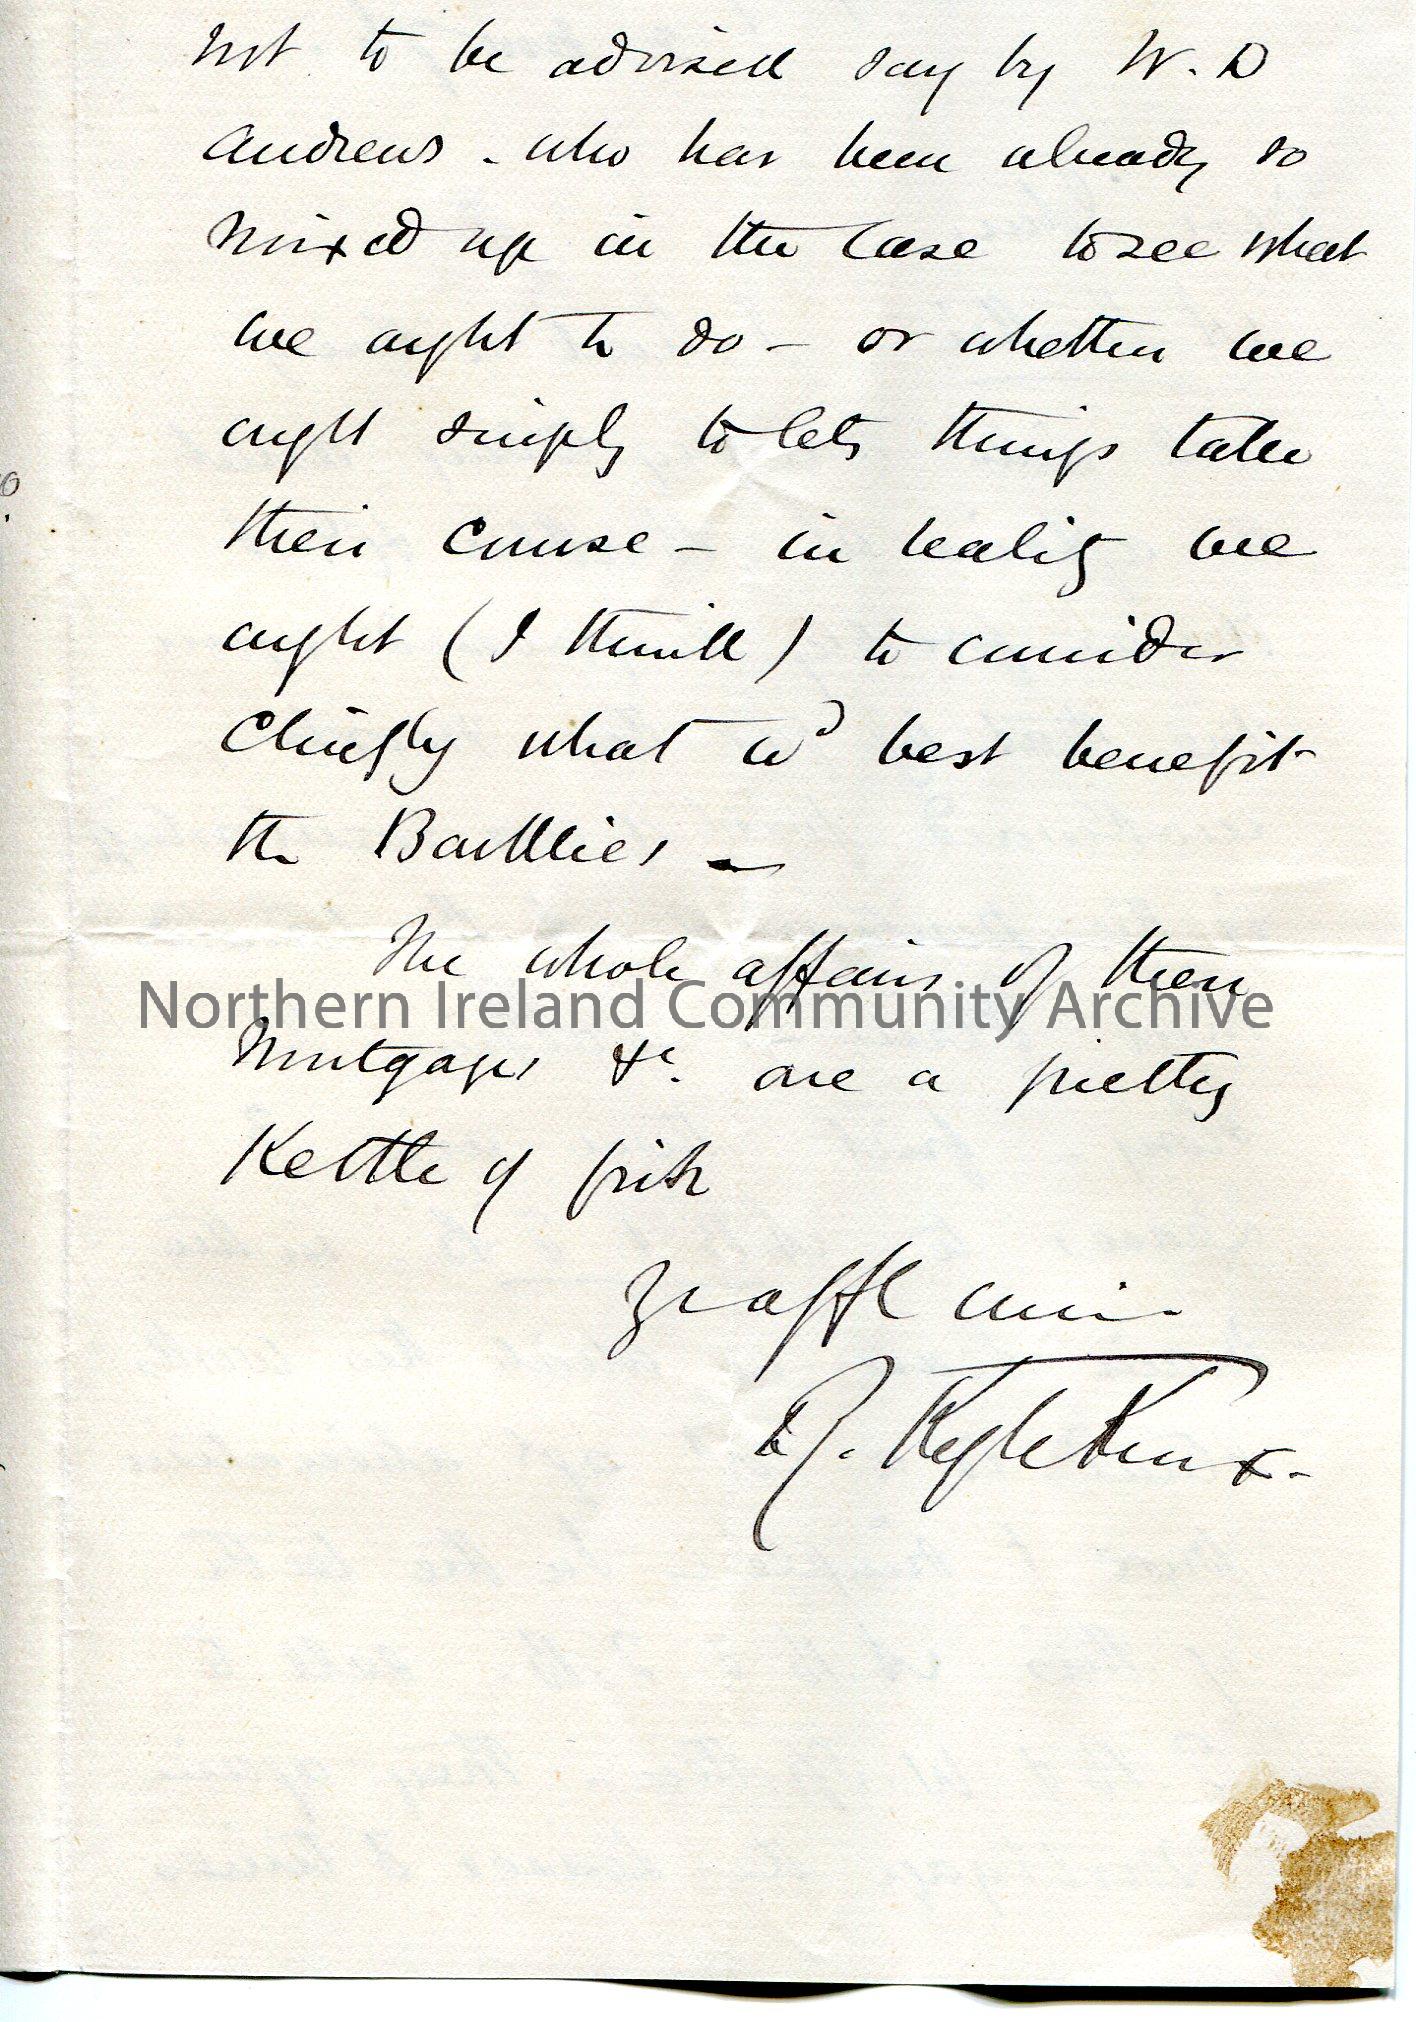 not to be advised say by W. D
Andrews - who has been already so
mixed up in the case to see what
we ought to do - or whether we
ought simply to let things take
their course - in reality we
ought (I think) to consider
chiefly what wd best benefit
the Baillies -
The whole affairs of these
Mortgages &c. are a pretty
Kettle of fish
Northern Ireland Community Archive
Yr afft cousin
Kyle Knox -